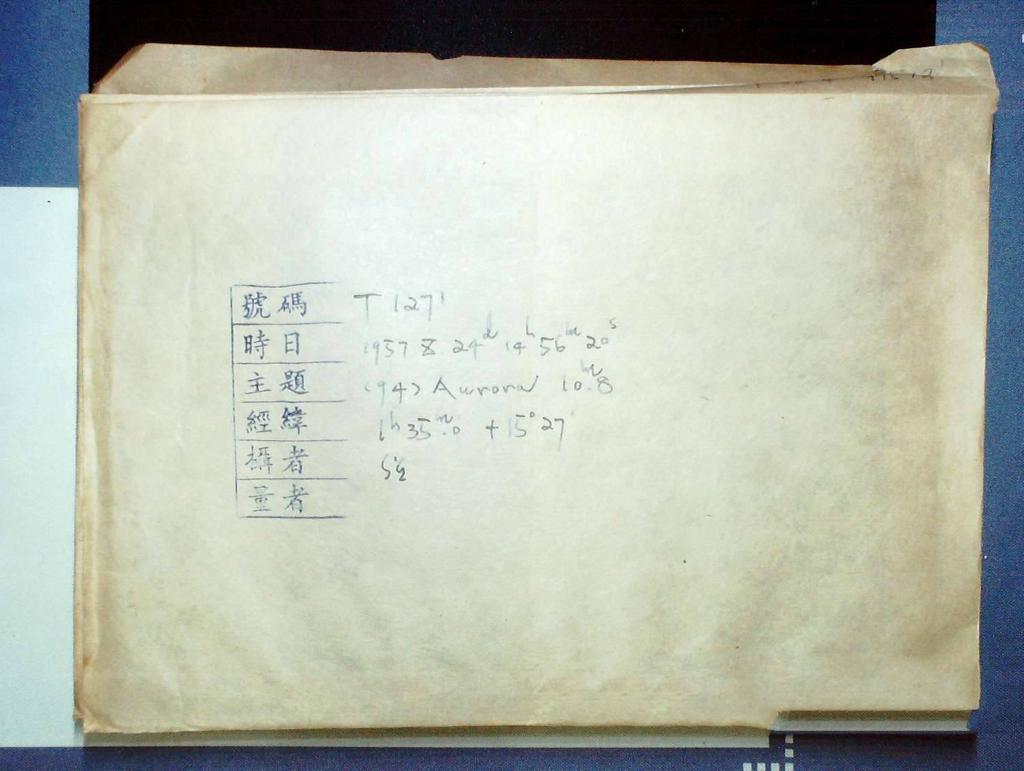 號碼 T 1271
時日 1957 8. 24ᵈ 14ʰ 56ᵐ 20ˢ
主題 (94) Aurora 10ᵐ.8
經緯 1ʰ 35ᵐ.0 +15°27'
攝者
量者